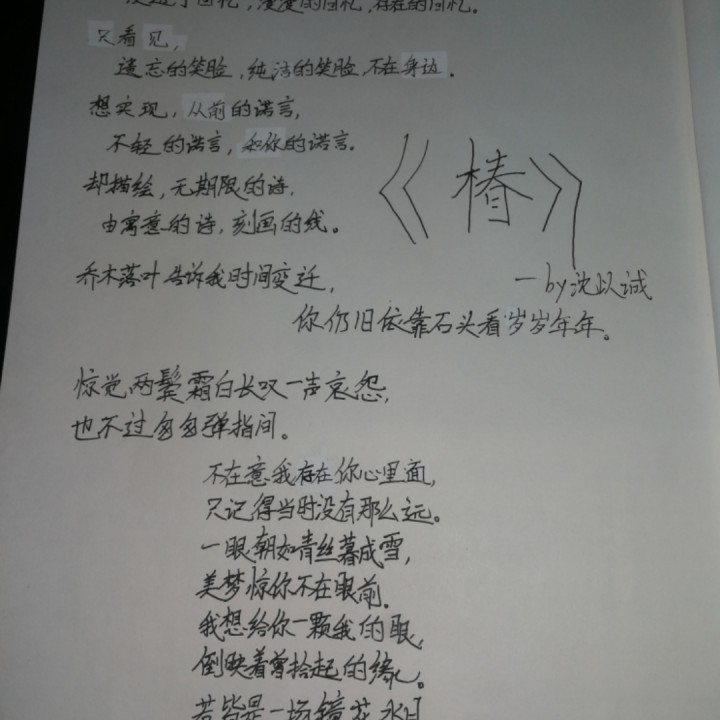 漫漫的回忆,存在的回忆。
只看见,
遗忘的笑脸,纯洁的笑脸,不在身边。
想实现,从前的诺言,
不轻的诺言,和你的诺言。
却描绘,无期限的诗,
由寓意的诗,刻画的线。
《椿》
—by沈以诚
乔木落叶告诉我时间变迁,
你仍旧依靠石头看岁岁年年。
惊觉两鬓霜白长叹一声哀怨,
也不过匆匆弹指间。
不在意我存在你心里面,
只记得当时没有那么远。
一眼朝如青丝暮成雪,
美梦惊你不在眼前。
我想给你一颗我的眼,
倒映着曾拾起的缘。
若皆是一场镜花水月